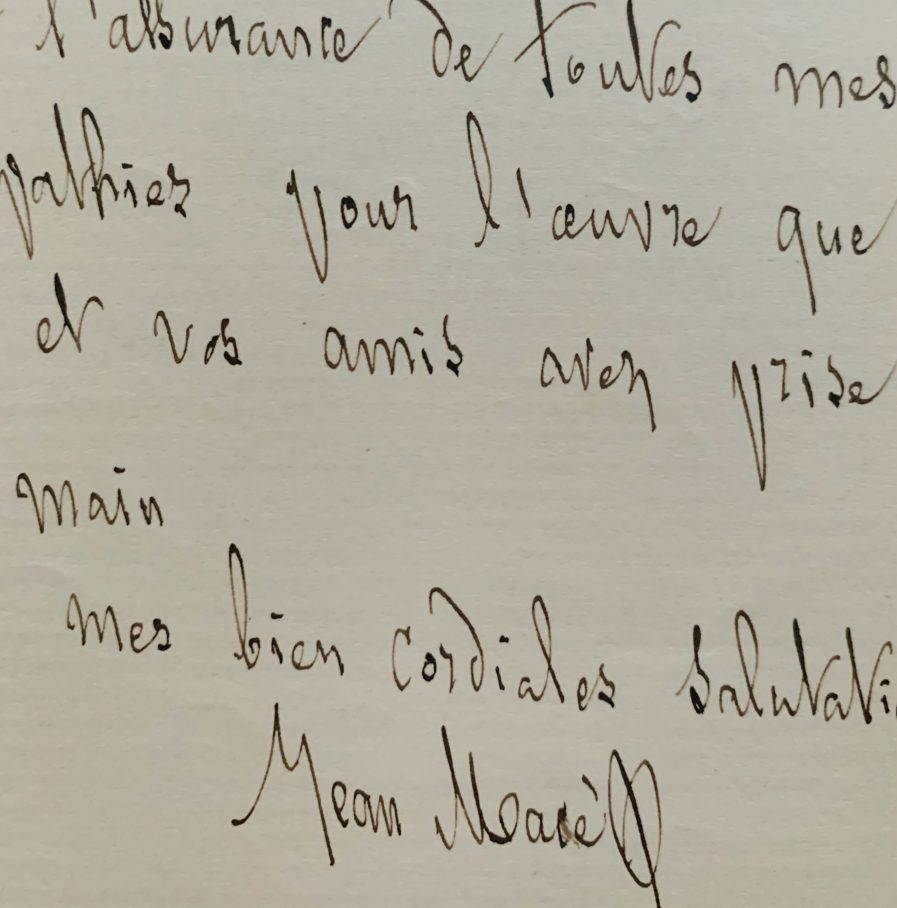 l'assurance de toutes mes
pathies pour l'œuvre que
et vos amis avez prise
main
mes bien cordiales salutati
Jean Macé